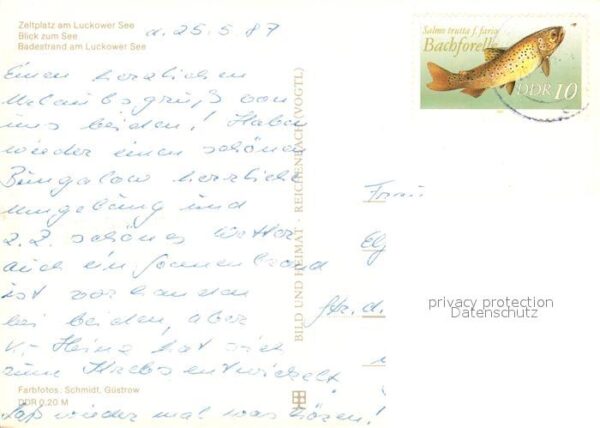 Zeltplatz am Luckower See
Blick zum See
Badestrand am Luckower See
d. 25.5.87
Einen herzlichen
Urlaubsgruß von
uns beiden! Haben
wieder einen schönen
Bungalow herrliche
Umgebung und
z.Z. schönes Wetter
auch ein Sonnenbrand
ist vorhanden
bei beiden, aber
K.-Heinz hat sich
zum Krebs entwickelt.
Laß wieder mal was hören!
Farbfotos: Schmidt, Güstrow
DDR 0,20 M
BILD UND HEIMAT · REICHENBACH (VOGTL)
Salmo trutta f. fario
Bachforelle
DDR 10
Frau
Str. d.
privacy protection
Datenschutz